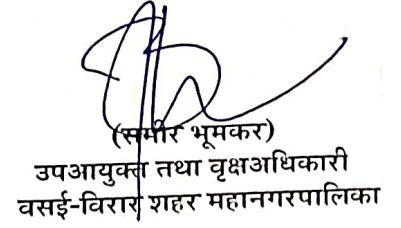 (समीर भूमकर)
उपआयुक्त तथा वृक्षअधिकारी
वसई-विरार शहर महानगरपालिका